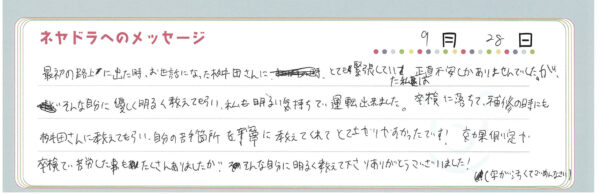 ネヤドラへのメッセージ
9月 28日
最初の路上に出た時、お世話になった板井田さんに とても緊張していました私は 正直不安しかありませんでしたが、
そんな自分に 優しく明るく教えてもらい、私も明るい気持ちで運転出来ました。卒検に落ちて、補修の時にも
さんに教えてもらい、自分の苦手箇所を丁寧に教えてくれて とても分かりやすかったです! 効果測定や
卒検で苦労した事もたくさんありましたが、そんな自分に明るく教えて下さりありがとうございました!
(字がきたなくてごめんなさい)